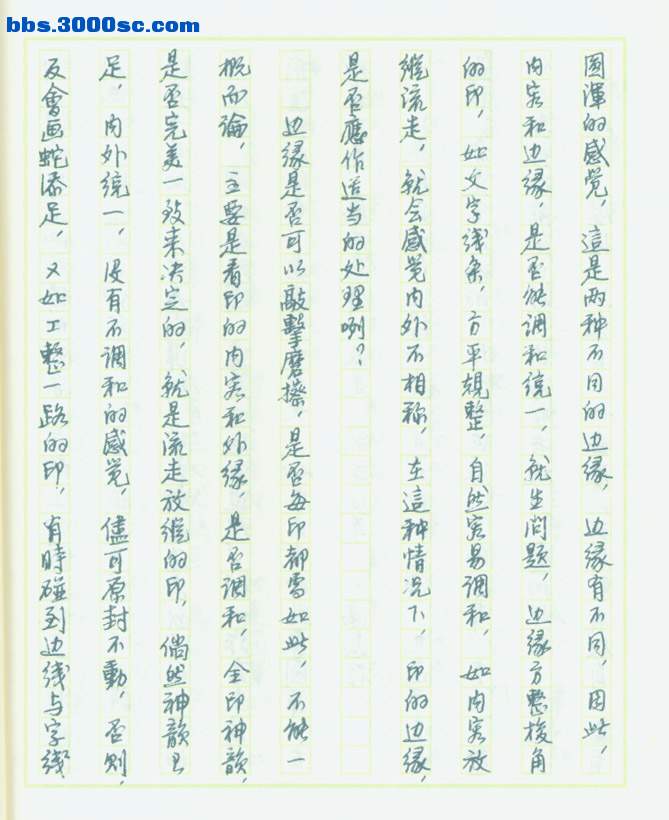 bbs.3000sc.com
圆渾的感觉，這是两种不同的边缘，边缘有不同，因此，
内容和边缘，是否能调和统一，就生问题，边缘方整棱角
的印，如文字线条，方平規整，自然容易调和，如内容放
縱流走，就会感觉内外不相称，在這种情况下，印的边缘，
是否應作适当的处理咧？
边缘是否可以敲擊磨擦，是否每印都需如此，不能一
概而論，主要是看印的内容和外缘，是否调和，全印神韻，
是否完美一致来决定的，就是流走放縱的印，倘然神韻已
足，内外统一，没有不调和的感觉，儘可原封不動，否则，
反會画蛇添足，又如工整一路的印，有時碰到边线与字线